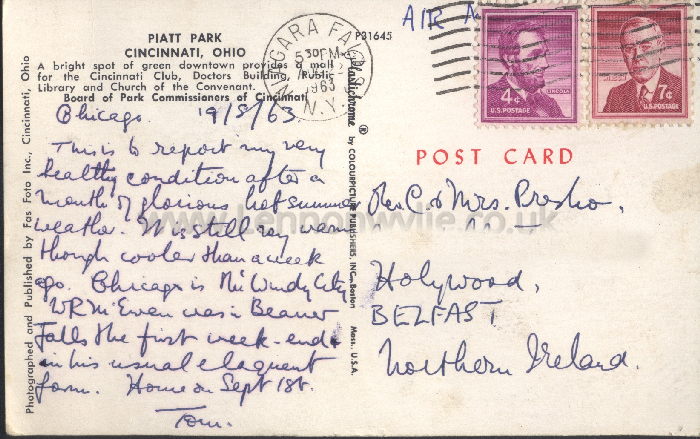 PIATT PARK
CINCINNATI, OHIO
A bright spot of green downtown provides a mall
for the Cincinnati Club, Doctors Building, Public
Library and Church of the Convenant.
Board of Park Commissioners of Cincinnati
P31645
AIR
NIAGARA FALLS
530 PM
1963
N.Y.
4¢
LINCOLN
U.S. POSTAGE
7¢
U.S. POSTAGE
Chicago. 19/8/63
This is to report my very
healthy condition after a
month of glorious hot summer
weather. It is still very warm
though cooler than a week
ago. Chicago is the Windy City
WR McEwen was in Beaver
Falls the first week-end
in his usual eloquent
form. Home on Sept 1st.
Tom.
POST CARD
Rev. C & Mrs. Presho,
Holywood,
BELFAST
Northern Ireland.
Photographed and Published by Fas Foto Inc., Cincinnati, Ohio
Plastichrome ® by COLOURPICTURE PUBLISHERS, INC., Boston Mass., U.S.A.
www.Lennonwylie.co.uk